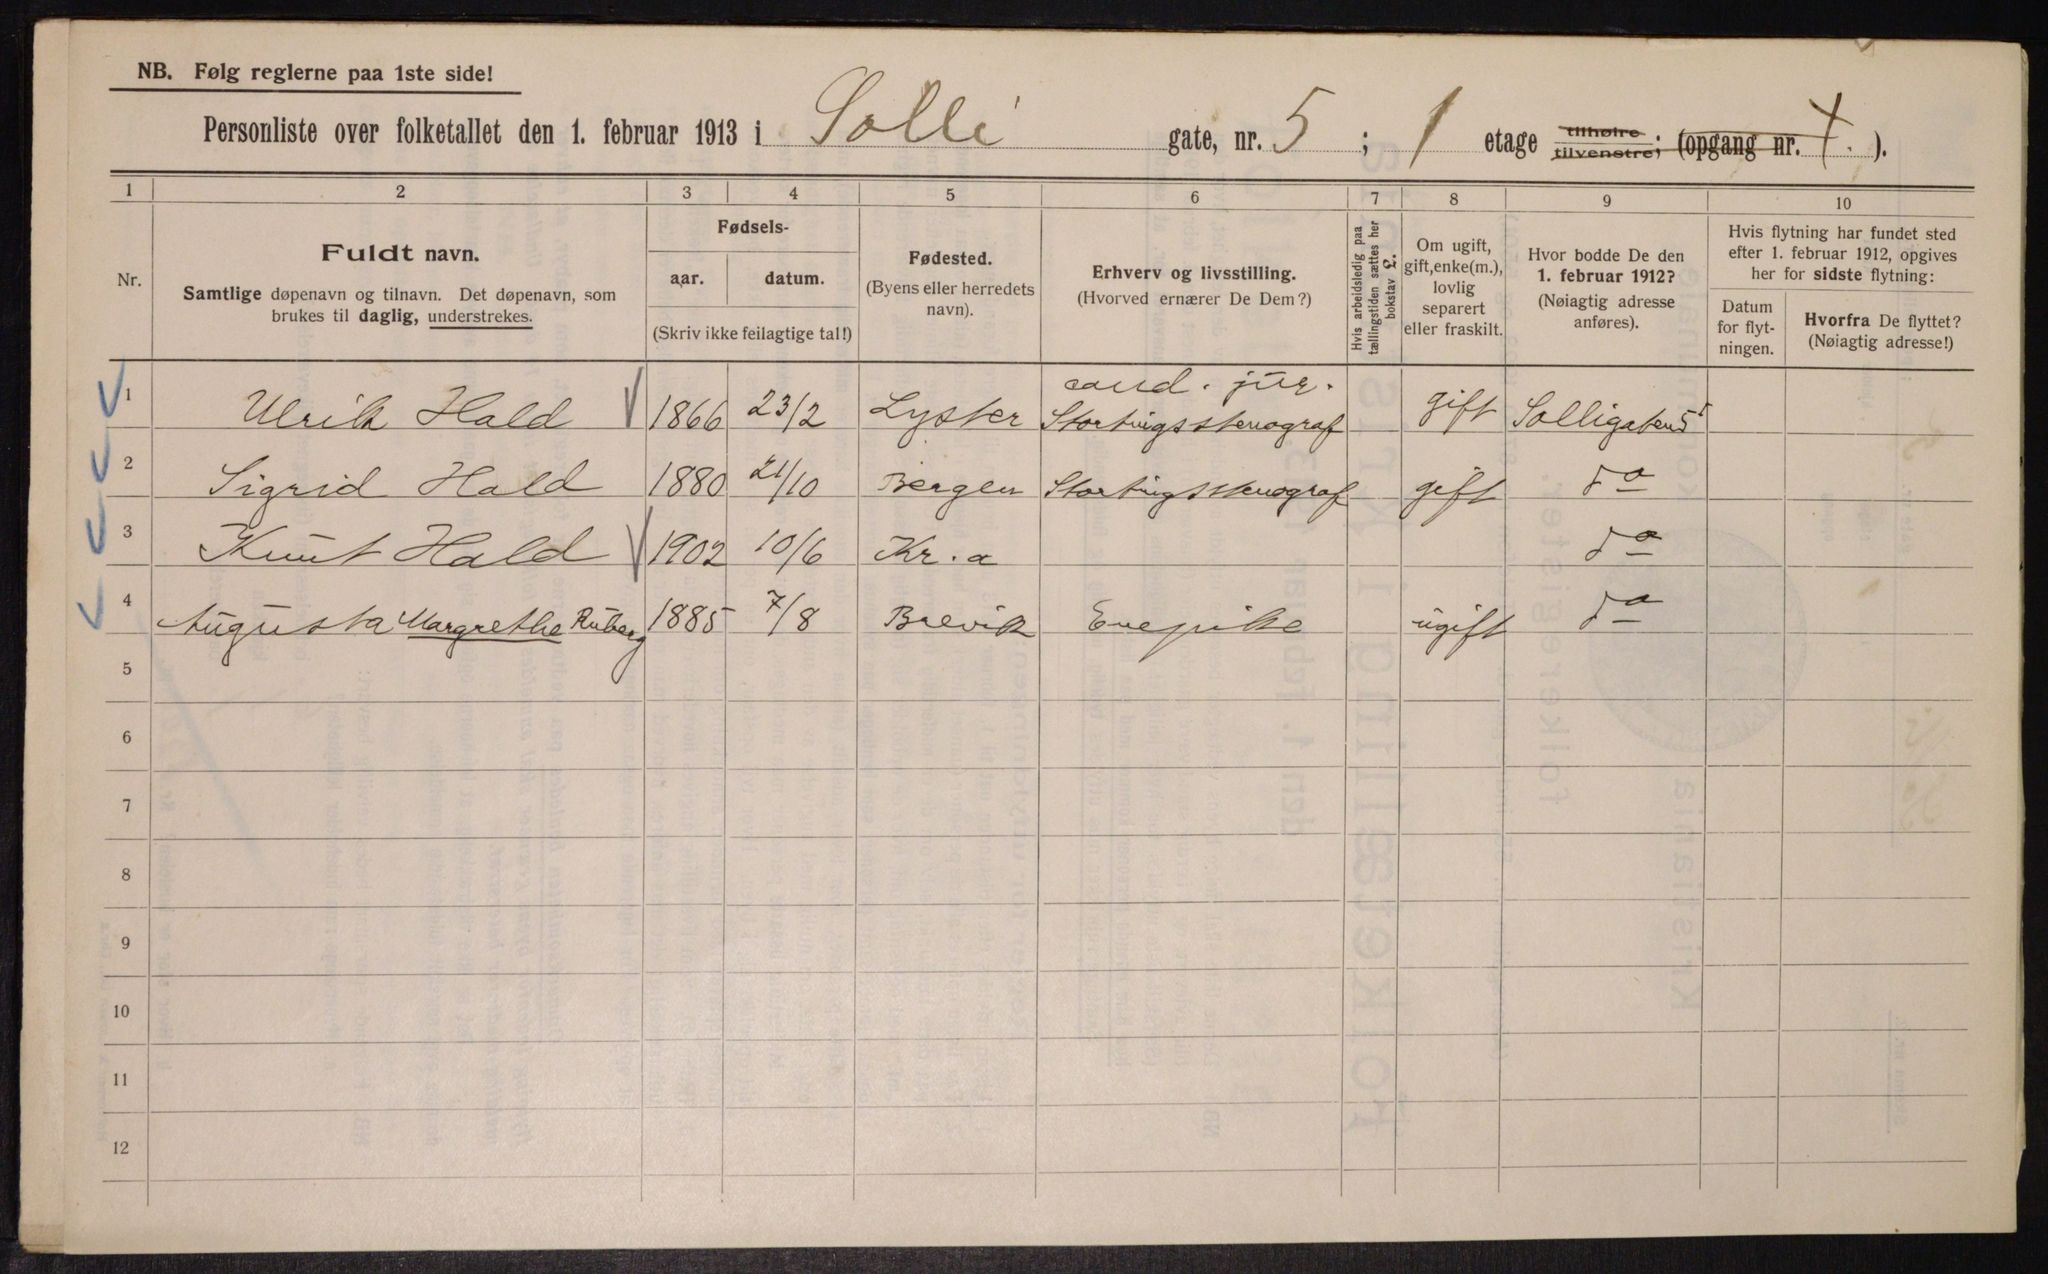 NB. Følg reglerne paa 1ste side!
Personliste over folketallet den 1. februar 1913 i Solli gate, nr. 5 ; 1 etage tilhøire tilvenstre; (opgang nr. ).
1 2 3 4 5 6 7 8 9 10
Nr.
Fuldt navn.
Samtlige døpenavn og tilnavn. Det døpenavn, som
brukes til daglig, understrekes.
Fødsels-
aar. datum.
(Skriv ikke feilagtige tal!)
Fødested.
(Byens eller herredets
navn).
Erhverv og livsstilling.
(Hvorved ernærer De Dem?)
Hvis arbeidsledig paa
tællingstiden sættes her
bokstav L.
Om ugift,
gift, enke(m.),
lovlig
separert
eller fraskilt.
Hvor bodde De den
1. februar 1912?
(Nøiagtig adresse
anføres).
Hvis flytning har fundet sted
efter 1. februar 1912, opgives
her for sidste flytning:
Datum
for flyt-
ningen.
Hvorfra De flyttet?
(Nøiagtig adresse!)
cand. jur.
1 Ulrik Hald 1866 23/2 Lyster Stortingsstenograf gift Solligaten 5 I
2 Sigrid Hald 1880 21/10 Bergen Stortingsstenograf gift do
3 Knut Hald 1902 10/6 Kr.a do
4 Augusta Margrethe Ruberg 1885 7/8 Brevik Enepike ugift do
5
6
7
8
9
10
11
12